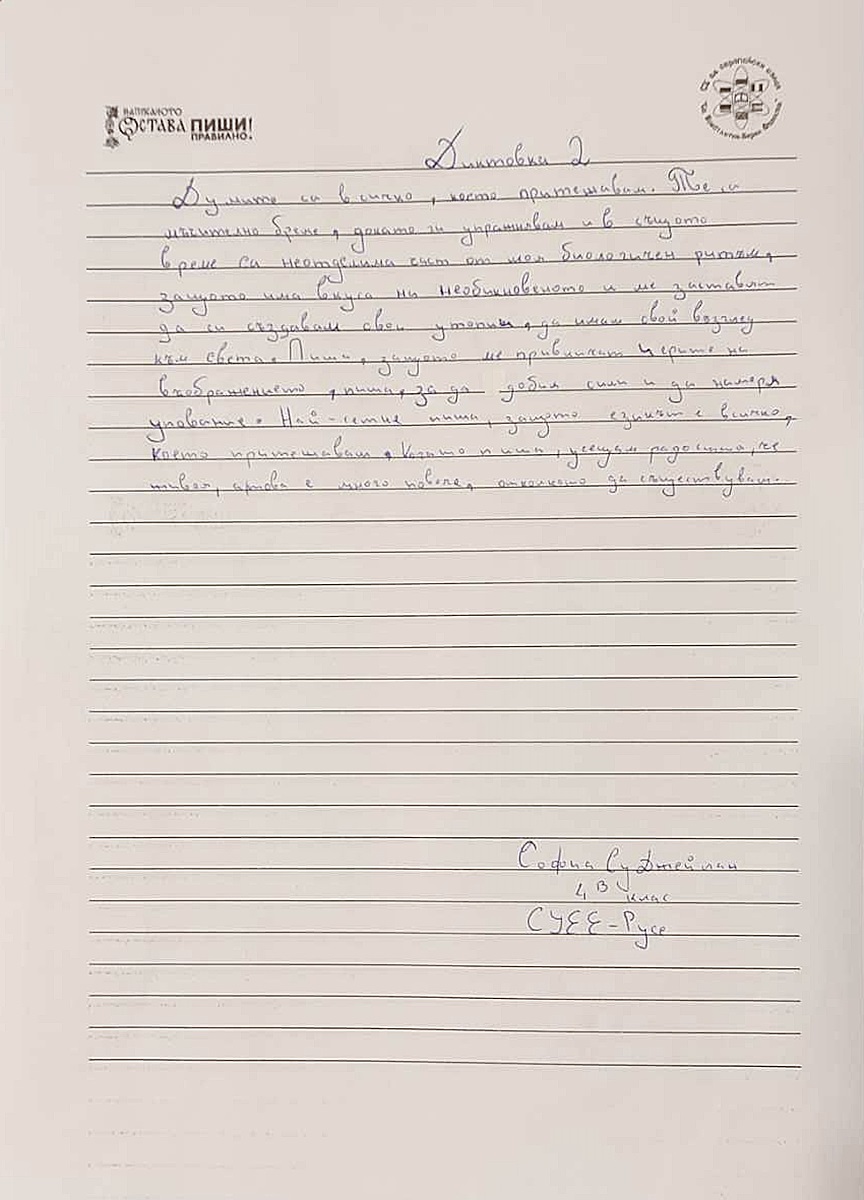 НАПИСАНОТО
ОСТАВА ПИШИ!
ПРАВИЛНО.
Диктовка 2
Думите са всичко, което притежавам. Те са
мъчително бреме, докато ги упражнявам и в същото
време са неотделима част от моя биологичен ритъм,
защото има вкуса на необикновеното и ме заставят
да си създавам свои утопии, да имам свой възглед
към света. Пиша, защото ме привличат на
въображението, пиша, за да добия сили и да намеря
упование. Най-сетне пиша, защото езикът е всичко,
което притежавам. Когато пиша, усещам радостта, че
живея, а това е много повече, отколкото да съществувам.
София Су Джейлан
4 В клас
СУЕЕ-Русе